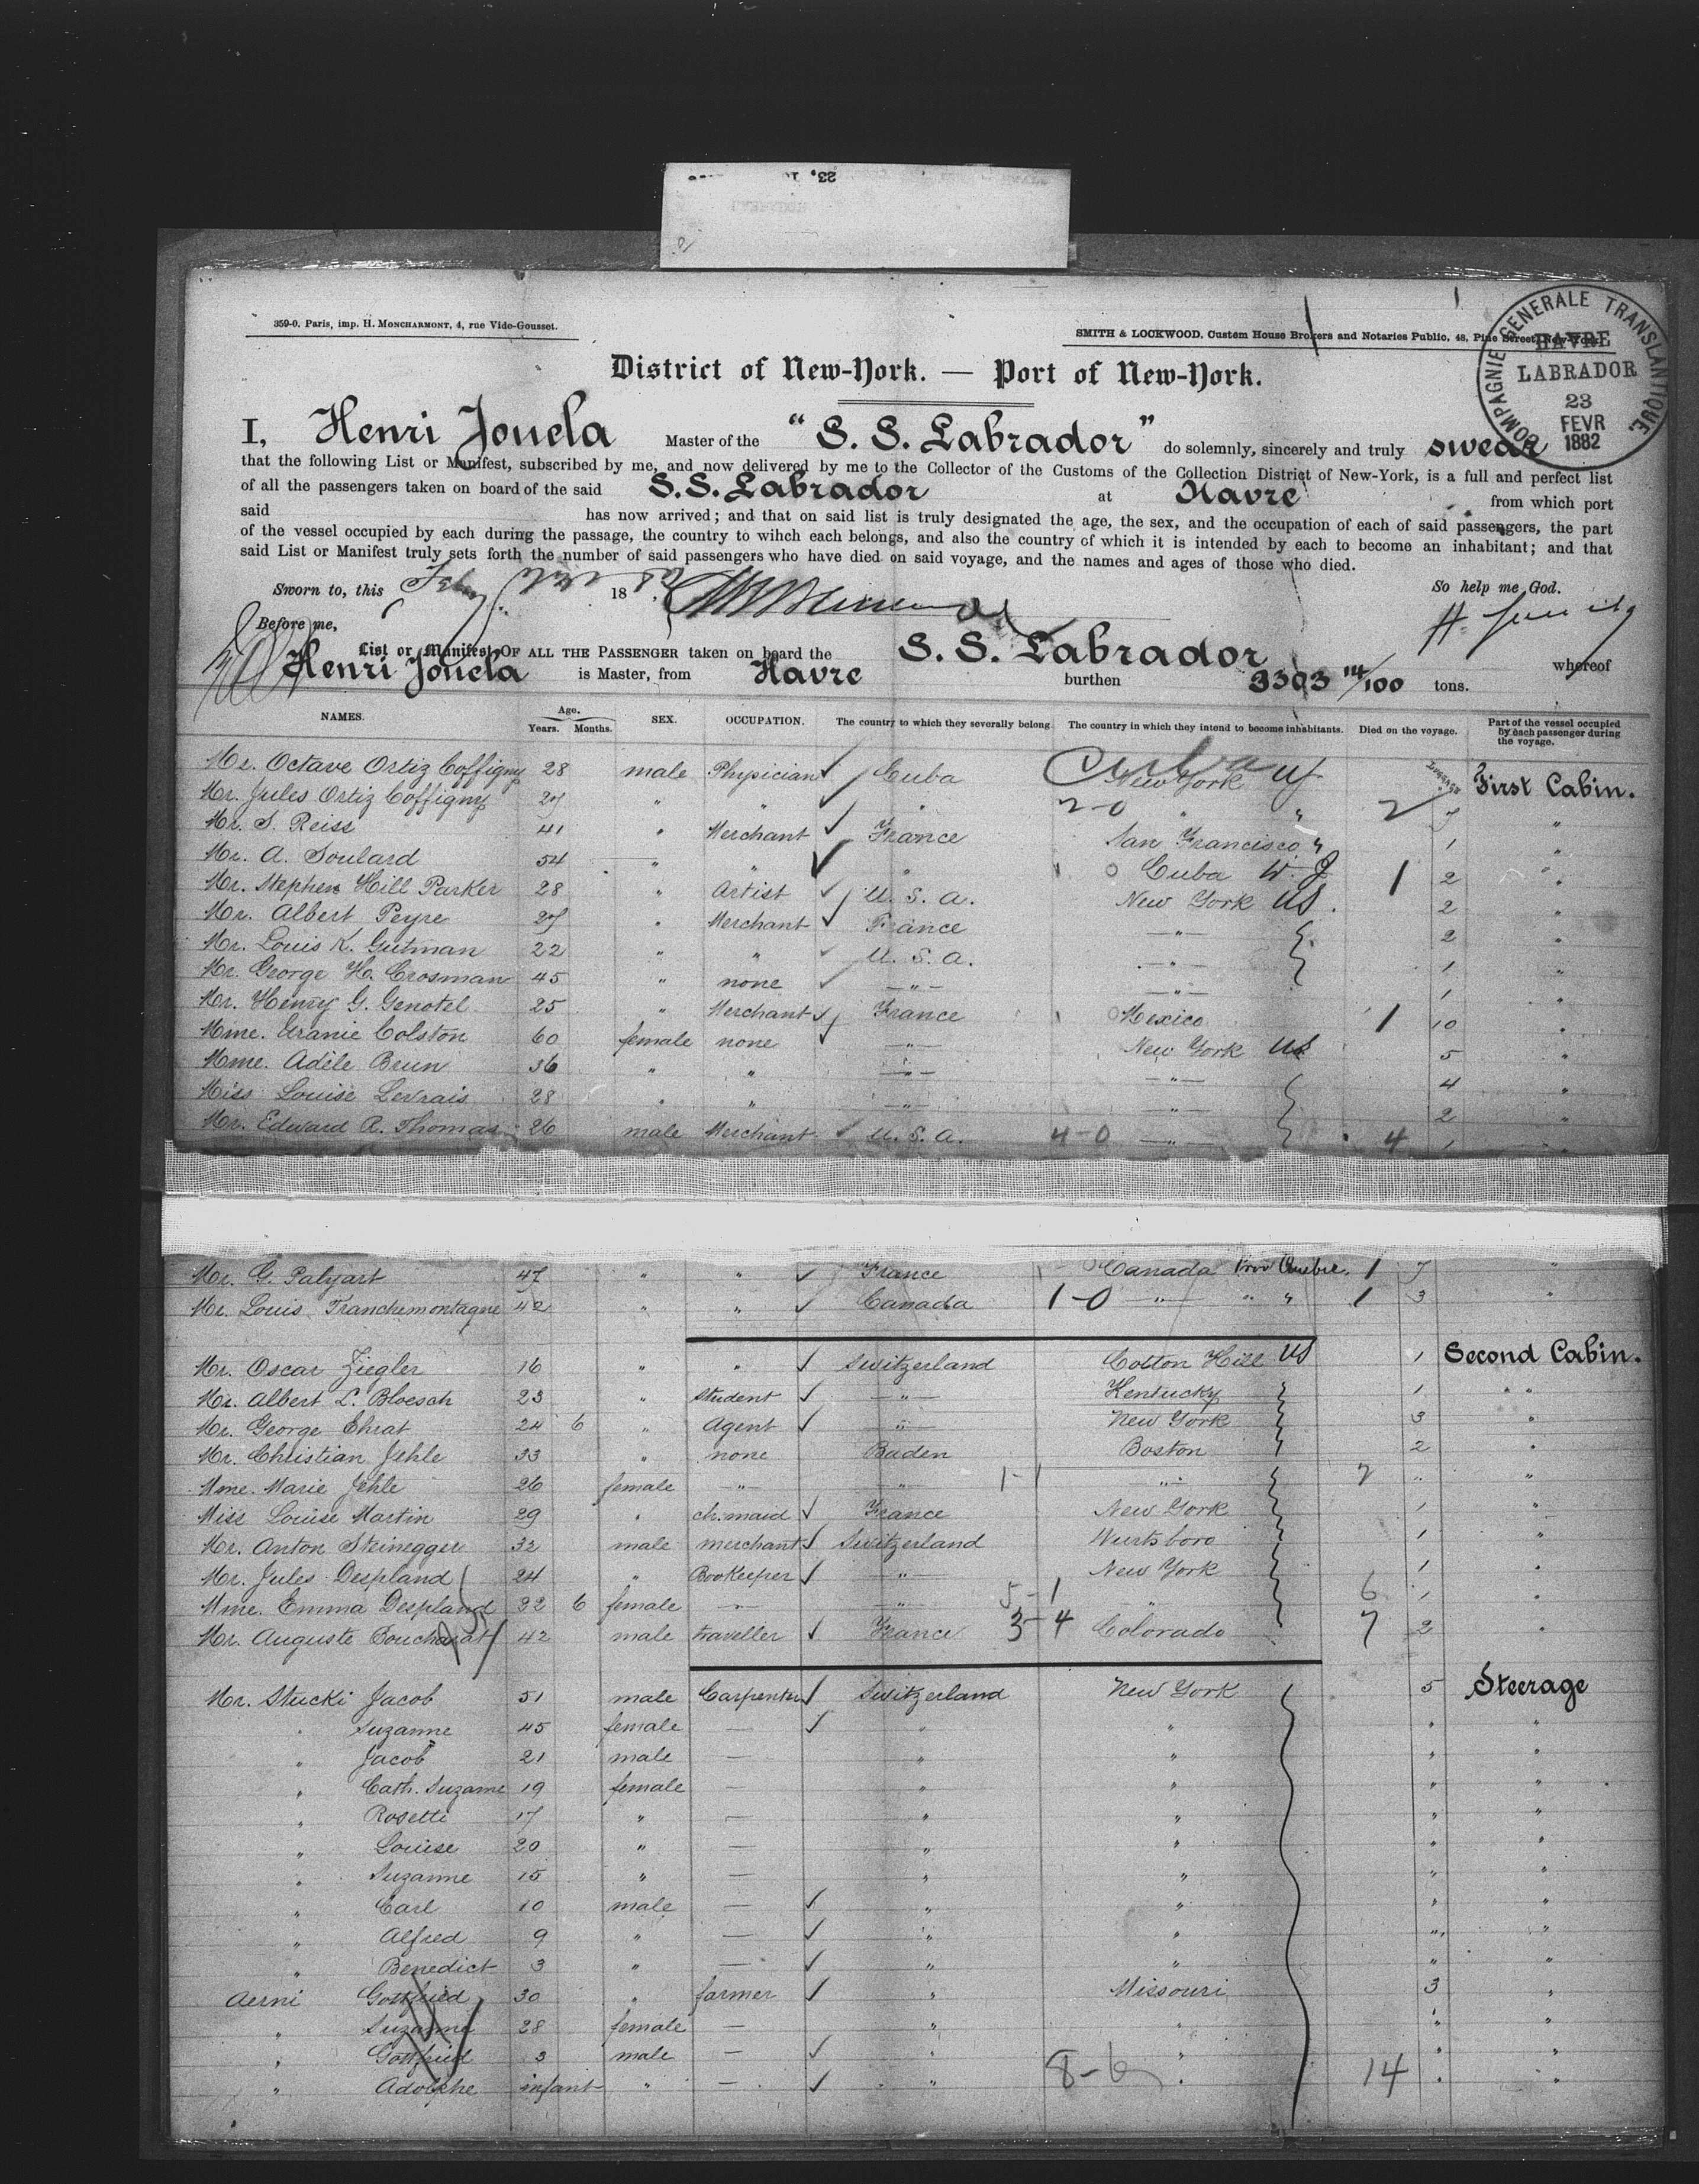 359-0. Paris, imp. H. MONCHARMONT, 4, rue Vide-Gousset.
SMITH & LOCKWOOD, Custom House Brokers and Notaries Public, 48, Pine Street, New-York.
COMPAGNIE GENERALE TRANSATLANTIQUE
HAVRE
LABRADOR
23
FEVR
1882
District of New-York. — Port of New-York.
I, Henri Jouela Master of the "S. S. Labrador" do solemnly, sincerely and truly swear
that the following List or Manifest, subscribed by me, and now delivered by me to the Collector of the Customs of the Collection District of New-York, is a full and perfect list
of all the passengers taken on board of the said S.S. Labrador at Havre from which port
said has now arrived; and that on said list is truly designated the age, the sex, and the occupation of each of said passengers, the part
of the vessel occupied by each during the passage, the country to wihch each belongs, and also the country of which it is intended by each to become an inhabitant; and that
said List or Manifest truly sets forth the number of said passengers who have died on said voyage, and the names and ages of those who died.
Sworn to, this 18 So help me God.
Before me,
List or Manifest OF ALL THE PASSENGER taken on board the S. S. Labrador whereof
Henri Jouela is Master, from Havre burthen 3303 14/100 tons.
NAMES. Age. Years. Months. SEX. OCCUPATION. The country to which they severally belong The country in which they intend to become inhabitants. Died on the voyage. Part of the vessel occupied by each passenger during the voyage.
Mr. Octave Ortiz Coffigny 28 male Physician Cuba Cuba New York First Cabin.
Mr. Jules Ortiz Coffigny 27 " " " 2-0 " " 2 7 "
Mr. S. Reiss 41 " Merchant France San Francisco " 1 "
Mr. A. Soulard 54 " " " 0 Cuba W. I 1 2 "
Mr. Stephen Hill Parker 28 " Artist U. S. A. New York US. 2 "
Mr. Albert Peyre 27 " Merchant France — " — 2 "
Mr. Louis K. Gutman 22 " " U. S. A. — " — 1 "
Mr. George H. Crosman 45 " none — " — — " — 1 "
Mr. Henry G. Genotel 25 " Merchant France 0 Mexico 1 10 "
Mme. Uranie Colston 60 female none — " — New York US 5 "
Mme. Adèle Brun 36 " " — " — — " — 4 "
Miss Louise Levrais 28 " " — " — — " — 2 "
Mr. Edward R. Thomas 26 male Merchant U. S. A. 4-0 — " — 4 1 "
Mr. G. Palyart 47 " " France 0 Canada Prov Quebec. 1 7 "
Mr. Louis Tranchemontagne 42 " " Canada 1-0 — " — " " 1 3 "
Mr. Oscar Ziegler 16 " " Switzerland Cotton Hill US 1 Second Cabin.
Mr. Albert L. Bloesch 23 " student — " — Kentucky 1 " "
Mr. George Ehrat 24 6 " Agent — " — New York 3 "
Mr. Christian Jehle 33 " none Baden Boston 2 "
Mme. Marie Jehle 26 female — " — " 1-1 " 2 " "
Miss Louise Martin 29 " ch. maid France New York 1 "
Mr. Anton Steinegger 32 male merchant Switzerland Wurtsboro 1 "
Mr. Jules Despland 24 " BooKeeper — " — New York 1 "
Mme. Emma Despland 32 6 female — " — — " — 5-1 " 6 1 "
Mr. Auguste Boucharat 42 male traveller France 3-4 Colorado 7 2 "
Mr. Stucki Jacob 51 male Carpenter Switzerland New York 5 Steerage
" Suzanne 45 female — " " " "
" Jacob 21 male — " " " "
" Cath. Suzanne 19 female — " " " "
" Rosette 17 " — " " " "
" Louise 20 " — " " " "
" Suzanne 15 " — " " " "
" Carl 10 male — " " " "
" Alfred 9 " — " " " "
" Benedict 3 " — " " " "
Aerni Gottfried 30 " farmer " Missouri 3 "
" Suzanne 28 female — " " " "
" Gottfried 3 male — " " " "
" Adolphe infant " — " 8-6 " 14 " "